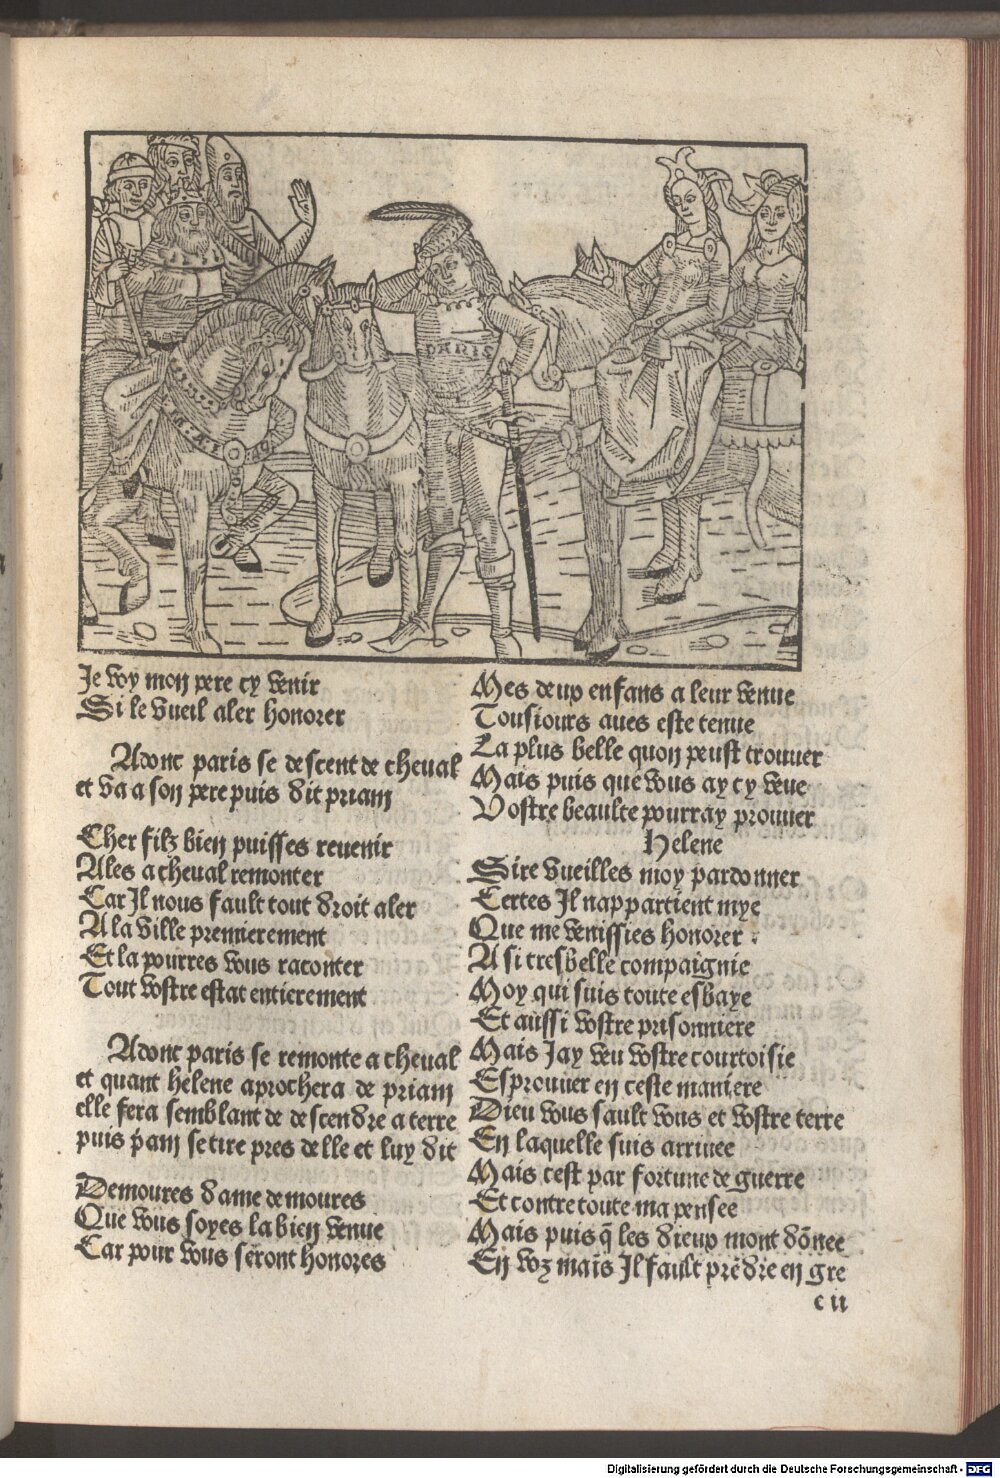 PARIS
Je voy mon pere cy venir
Si le vueil aler honorer
Adonc paris se descent de cheval
et va a son pere puis dit priam
Cher filz bien puisses revenir
Ales a cheval remonter
Car Il nous fault tout droit aler
A la ville premierement
Et la pourres vous raconter
Tout vostre estat entierement
Adonc paris se remonte a cheval
et quant helene aprochera de priam
elle fera semblant de descendre a terre
puis p̄am se tire pres delle et luy dit
Demoures dame demoures
Que vous soyes la bien venue
Car pour vous seront honores
Mes deux enfans a leur venue
Tousiours aues este tenue
La plus belle quon peust trouuer
Mais puis que vous ay cy veue
Vostre beaulte pourray prouuer
Helene
Sire vueilles moy pardonner
Certes Il nappartient mye
Que me venissies honorer
A si tresbelle compaignie
Moy qui suis toute esbaye
Et aussi vostre prisonniere
Mais Jay veu vostre courtoisie
Esprouuer en ceste maniere
Dieu vous sault vous et vostre terre
En laquelle suis arriuee
Mais cest par fortune de guerre
Et contre toute ma pensee
Mais puis q̄ les dieux mont dōnee
En voz mais Il fault prēdre en gre
c ii
Digitalisierung gefördert durch die Deutsche Forschungsgemeinschaft - DFG